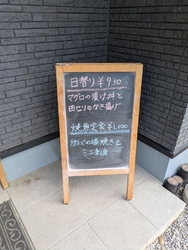 日替り ¥930
マグロの漬け丼と
のかき揚げ
焼魚定食 ¥1,000
塩焼きと
ミニ